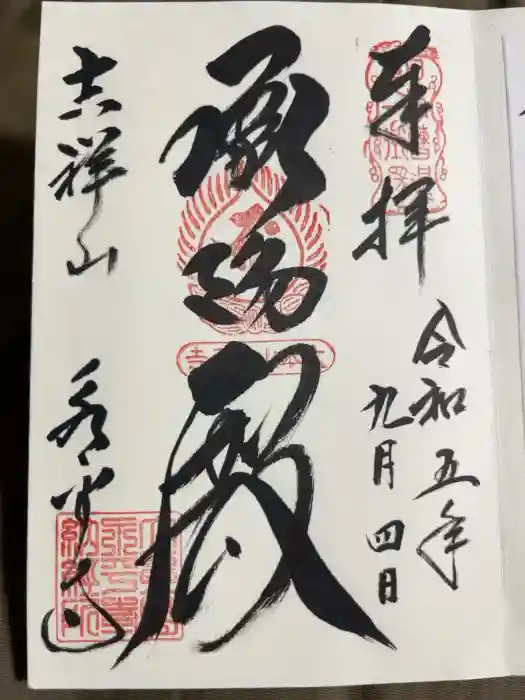 奉拝
令和五年
九月四日
承陽殿
吉祥山
永平寺